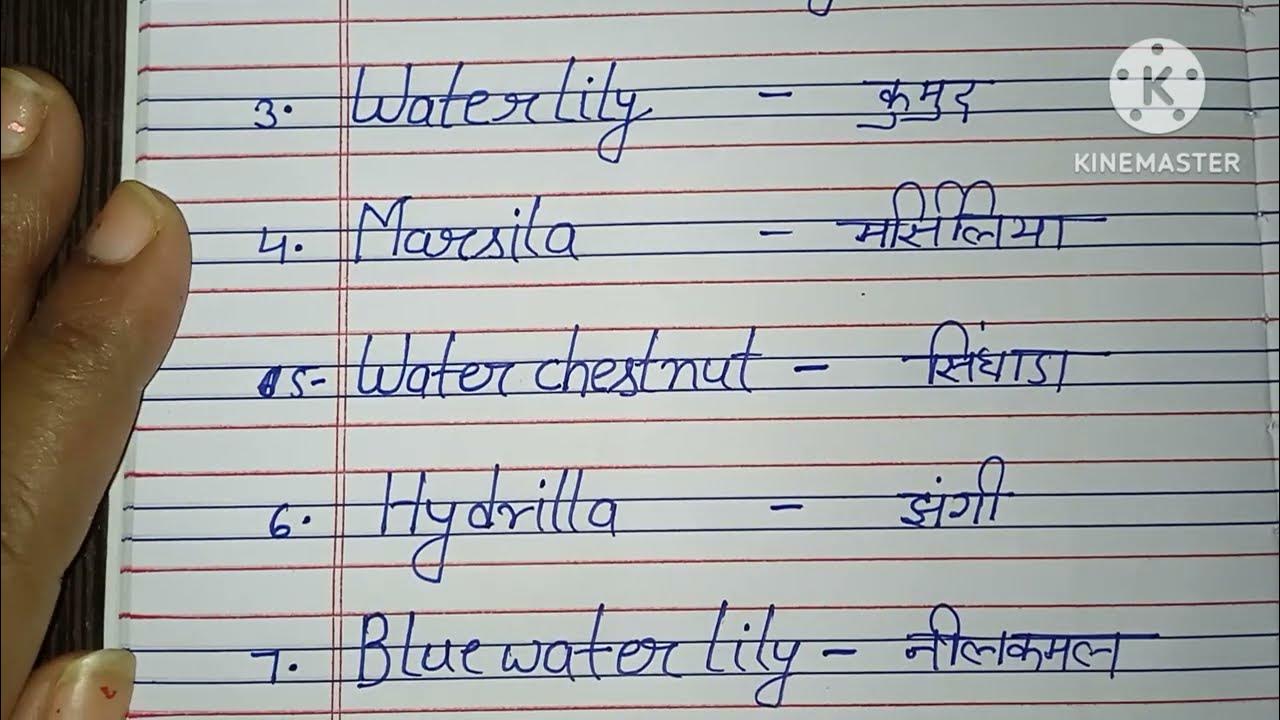 3. Waterlily - कुमुद
K
KINEMASTER
4. Marsila - मर्सिलिया
5- Water chestnut - सिंघाडा
6. Hydrilla - झंगी
7. Blue water lily - नीलकमल